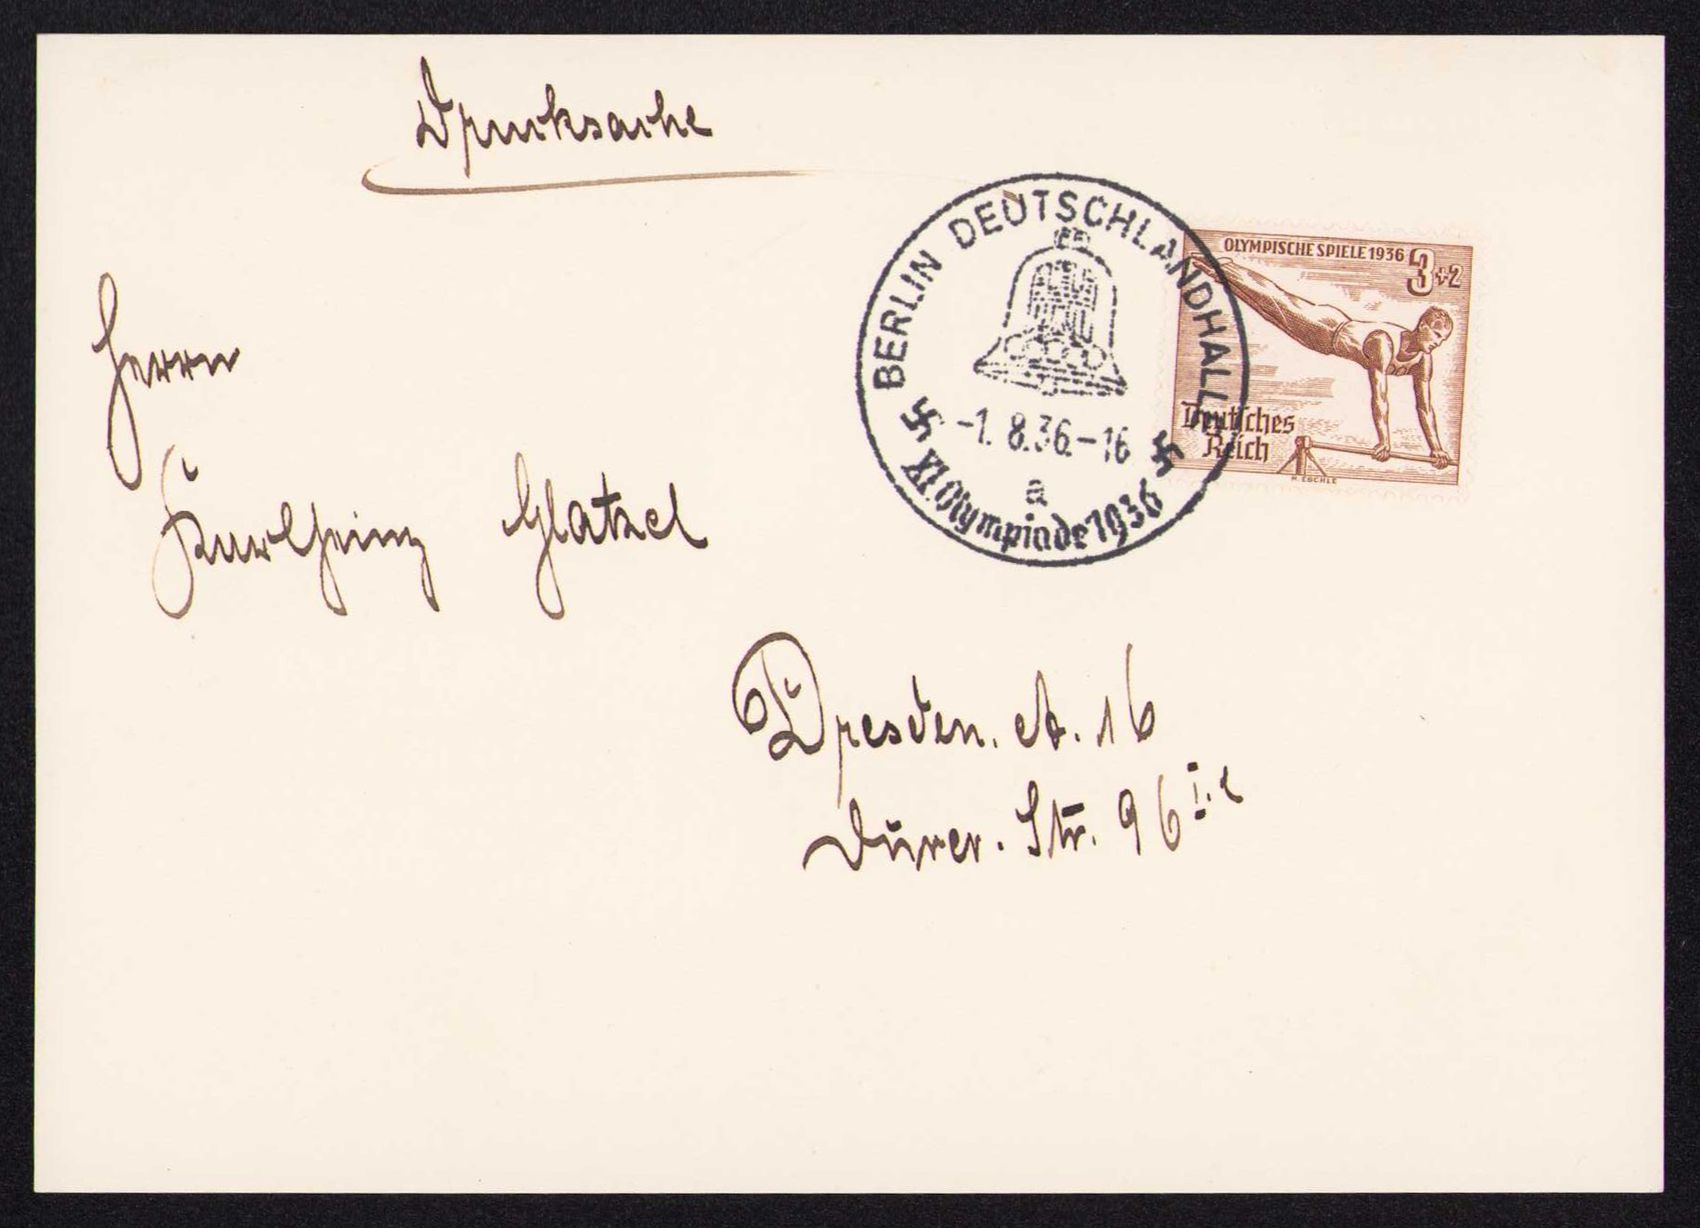 Drucksache
BERLIN DEUTSCHLANDHALLE
-1.8.36.-16
a
XI. Olympiade 1936
OLYMPISCHE SPIELE 1936 3+2
Deutsches
Reich
M. ESCHLE
Herrn
Karlheinz Glatzel
Dresden. A. 16
Dürer. Str. 96 I.